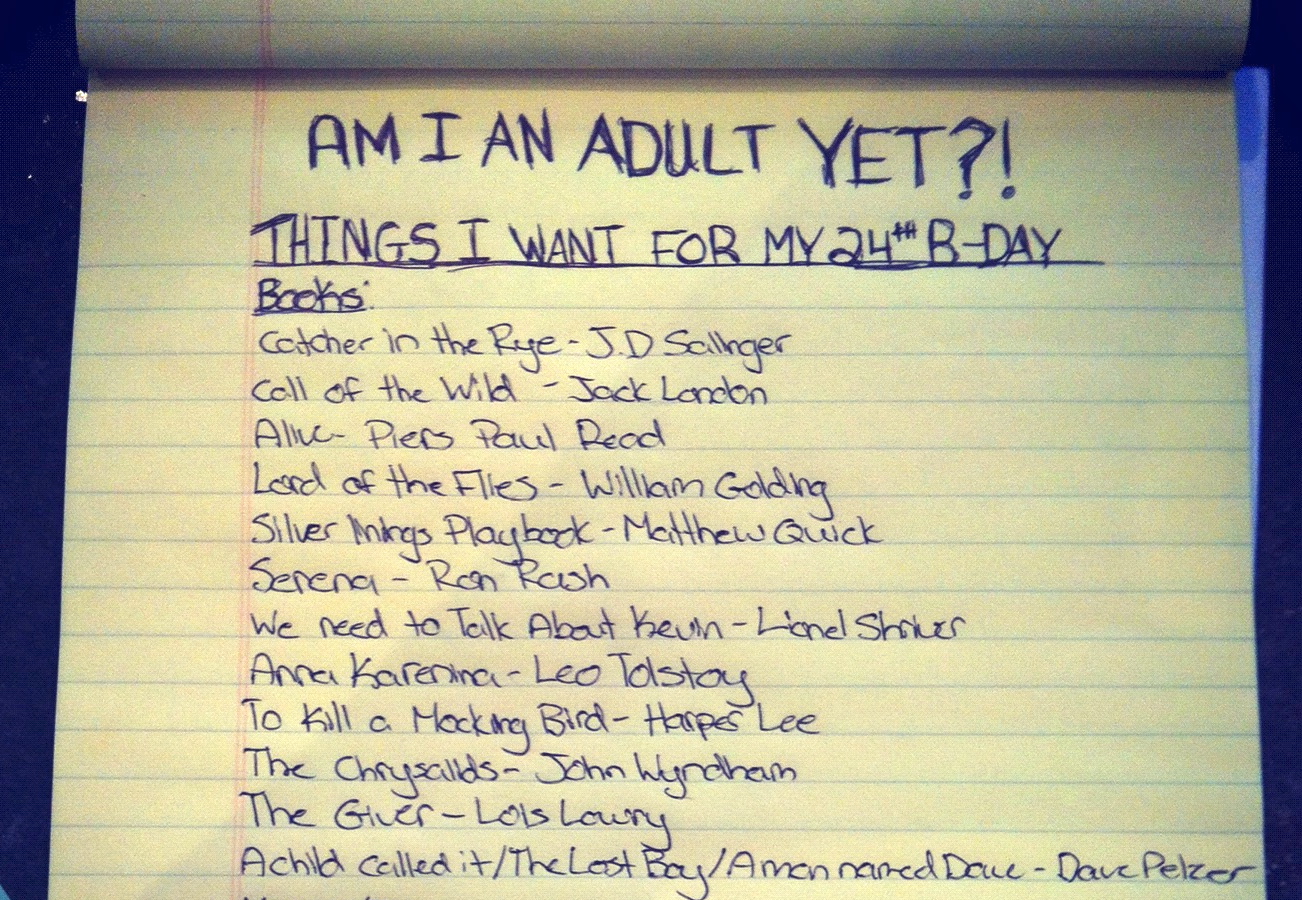 AM I AN ADULT YET?!
THINGS I WANT FOR MY 24th B-DAY
Books:
Catcher in the Rye - J.D Salinger
Call of the Wild - Jack London
Alive - Piers Paul Read
Lord of the Flies - William Golding
Silver linings Playbook - Matthew Quick
Serena - Ron Rash
We need to Talk About Kevin - Lionel Shriver
Anna Karenina - Leo Tolstoy
To Kill a Mocking Bird - Harper Lee
The Chrysalids - John Wyndham
The Giver - Lois Lowry
A child called it/The Lost Boy/A man named Dave - Dave Pelzer